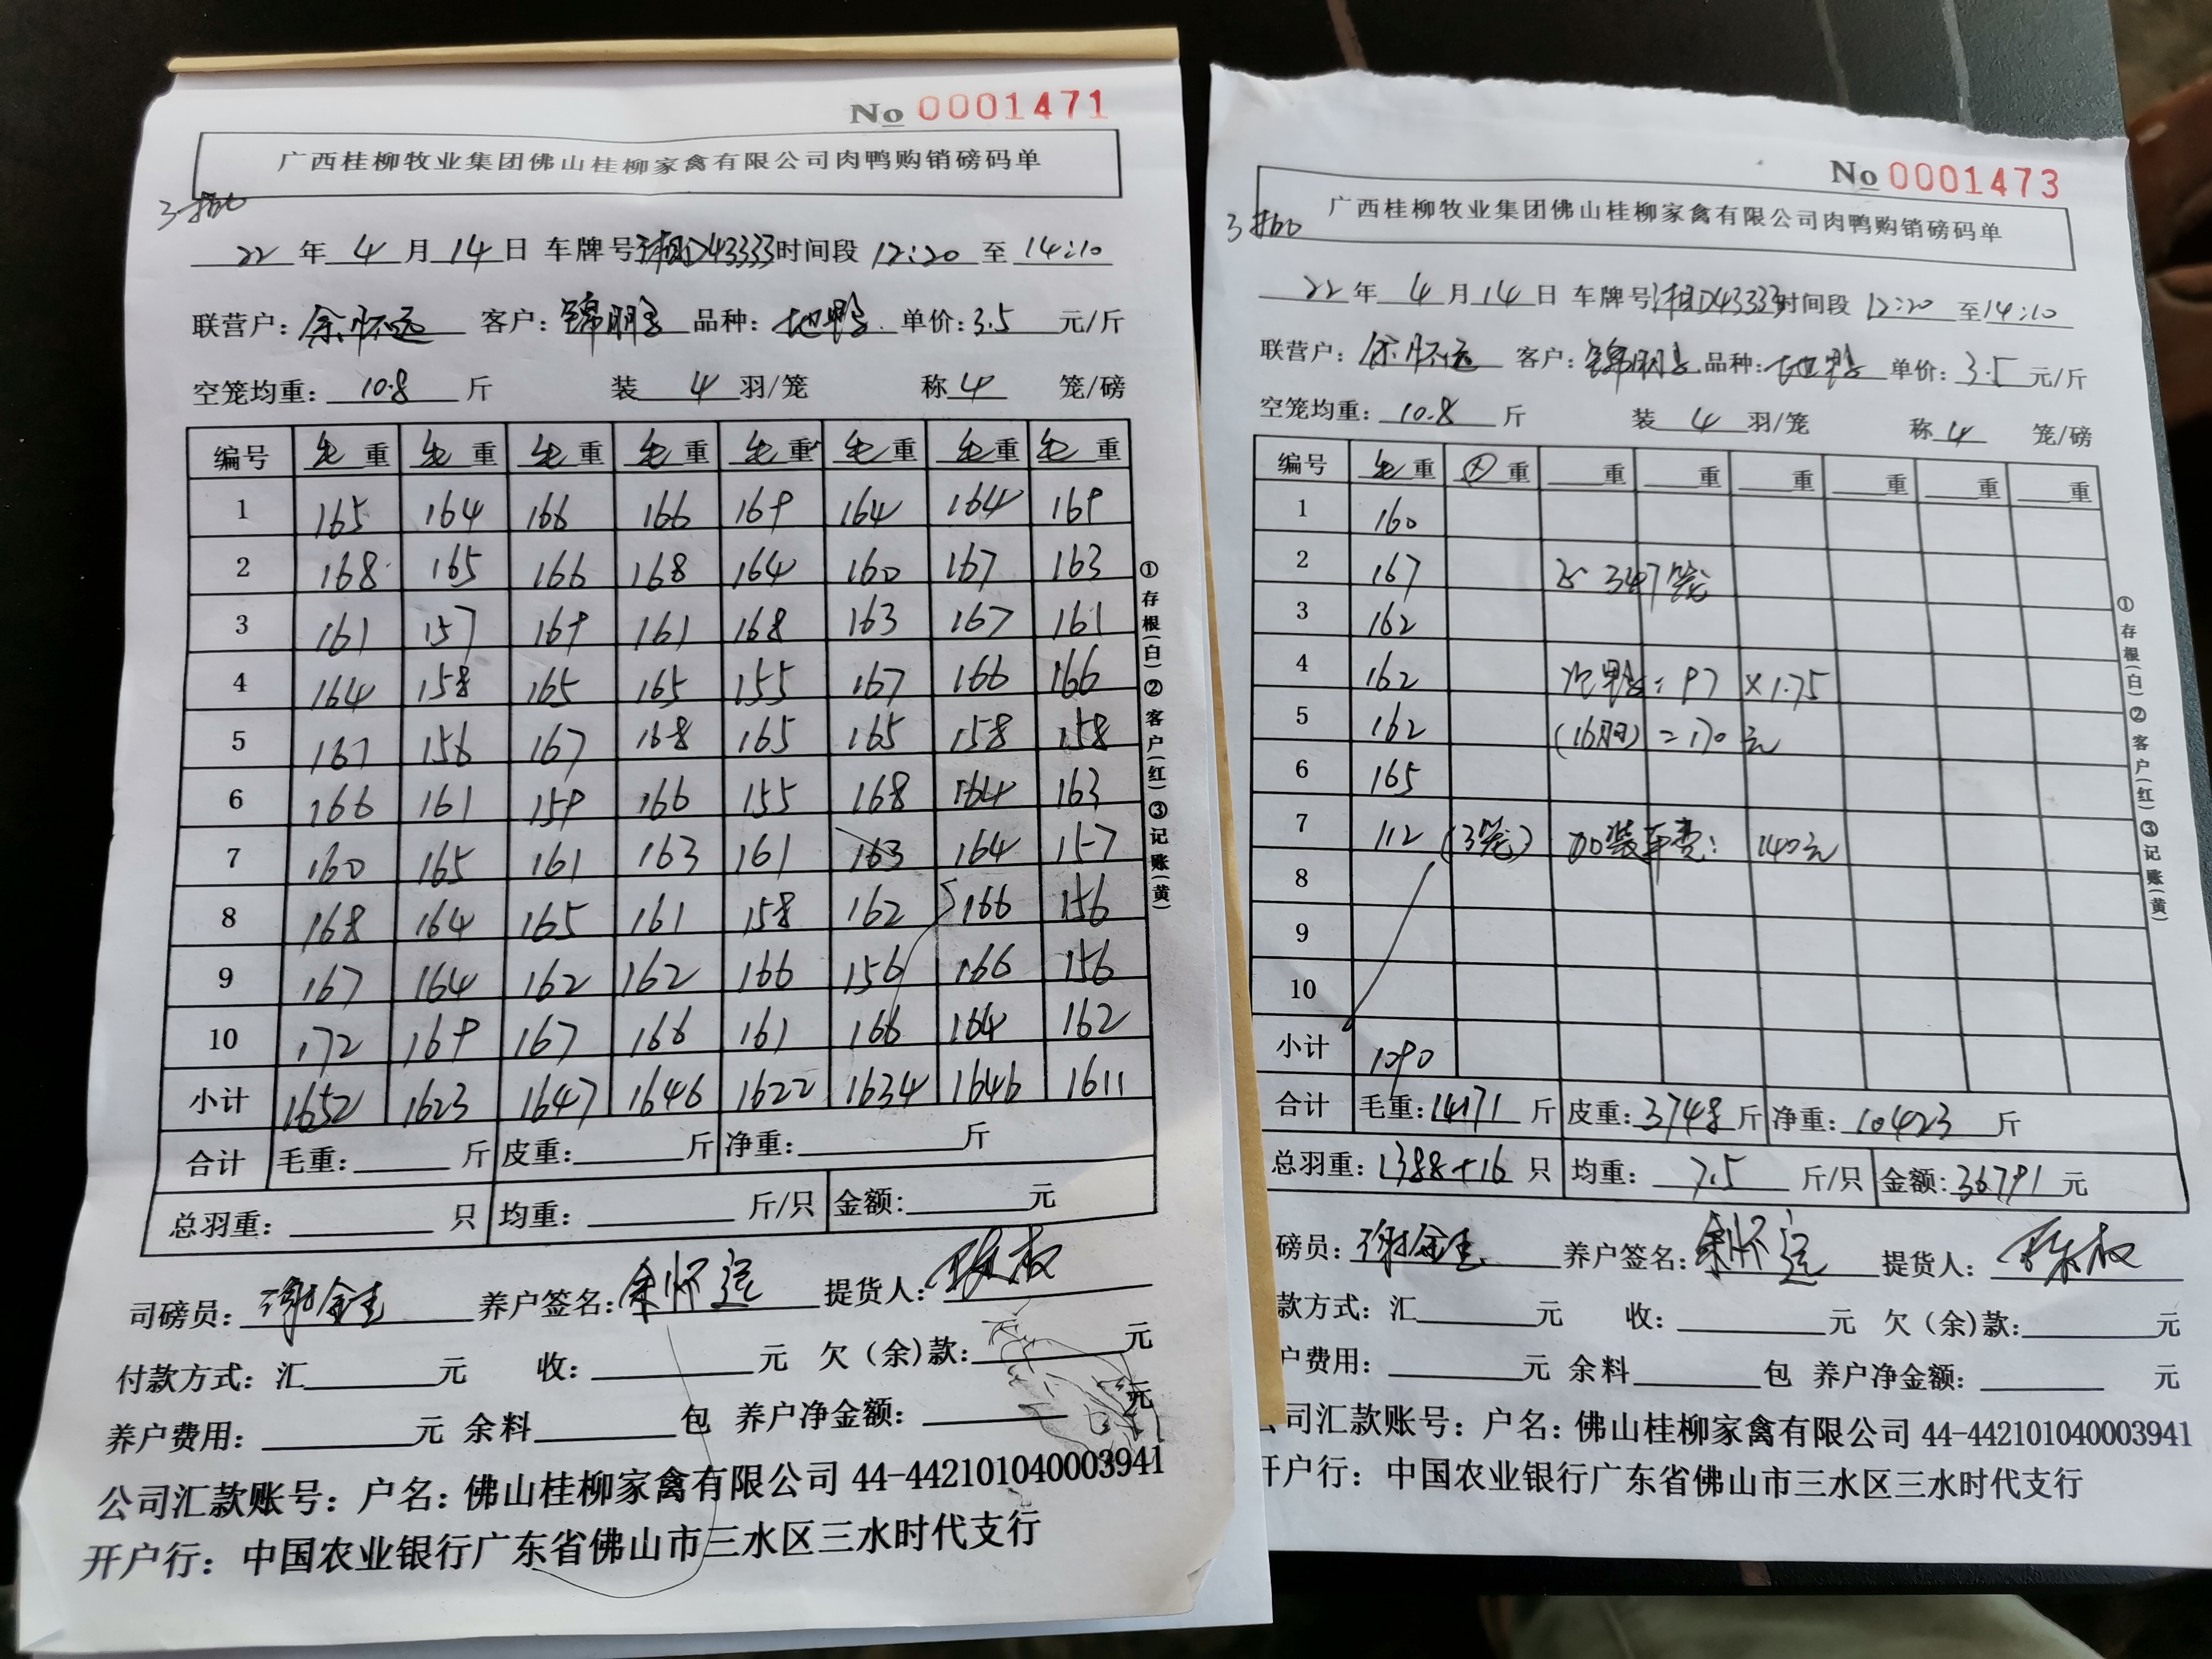 No 0001471
广西桂柳牧业集团佛山桂柳家禽有限公司肉鸭购销磅码单
22 年 4 月 14 日 车牌号 湘D43333 时间段 12:20 至 14:10
联营户: 余怀远 客户: 锦鹏 品种: 地鸭 单价: 3.5 元/斤
空笼均重: 10.8 斤 装 4 羽/笼 称 4 笼/磅
编号 毛重 毛重 毛重 毛重 毛重 毛重 毛重 毛重
1 165 164 166 166 169 164 164 169
2 168 165 166 168 164 160 167 163
3 161 157 169 161 168 163 167 161
4 164 158 165 165 155 167 166 166
5 161 156 167 168 165 165 158 158
6 166 161 159 166 155 168 164 163
7 160 165 161 163 161 163 164 157
8 168 164 165 161 158 162 166 156
9 167 164 162 162 166 156 166 156
10 172 169 167 166 161 166 164 162
小计 1652 1623 1647 1646 1622 1634 1646 1611
合计 毛重: 斤 皮重: 斤 净重: 斤
总羽重: 只 均重: 斤/只 金额: 元
①存根(白)②客户(红)③记账(黄)
司磅员: 谢金 养户签名: 余怀远 提货人:
付款方式: 汇 元 收: 元 欠(余)款: 元
养户费用: 元 余料 包 养户净金额: 元
公司汇款账号: 户名: 佛山桂柳家禽有限公司 44-442101040003941
开户行: 中国农业银行广东省佛山市三水区三水时代支行
No 0001473
广西桂柳牧业集团佛山桂柳家禽有限公司肉鸭购销磅码单
22 年 4 月 14 日 车牌号 湘D43333 时间段 12:20 至 14:10
联营户: 余怀远 客户: 锦鹏 品种: 地鸭 单价: 3.5 元/斤
空笼均重: 10.8 斤 装 4 羽/笼 称 4 笼/磅
编号 毛重 重 重 重 重 重 重 重
1 160
2 167 347笼
3 162
4 162 鸭: 97 ×1.75
5 162 (16只) = 170元
6 165
7 112 (3笼) 加装车费: 140元
8
9
10
小计 1090
合计 毛重: 14171 斤 皮重: 3748 斤 净重: 10423 斤
总羽重: 1388+16 只 均重: 7.5 斤/只 金额: 36791 元
①存根(白)②客户(红)③记账(黄)
磅员: 谢金 养户签名: 余怀远 提货人:
款方式: 汇 元 收: 元 欠(余)款: 元
户费用: 元 余料 包 养户净金额: 元
公司汇款账号: 户名: 佛山桂柳家禽有限公司 44-442101040003941
开户行: 中国农业银行广东省佛山市三水区三水时代支行